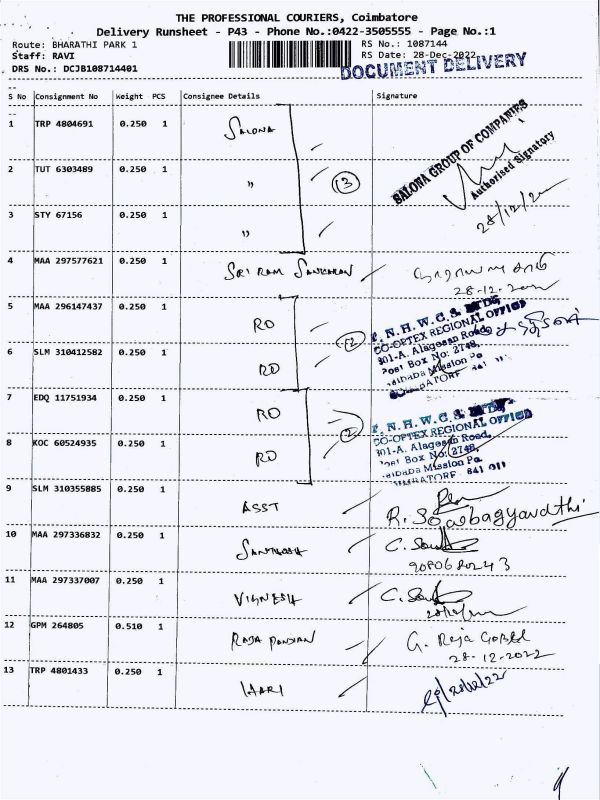 THE PROFESSIONAL COURIERS, Coimbatore
Delivery Runsheet - P43 - Phone No.:0422-3505555 - Page No.:1
Route: BHARATHI PARK 1 RS No.: 1087144
Staff: RAVI RS Date: 28-Dec-2022
DRS No.: DCJB108714401 DOCUMENT DELIVERY
S No Consignment No Weight PCS Consignee Details Signature
1 TRP 4804691 0.250 1 SALONA
SALONA GROUP OF COMPANIES
Authorised Signatory
2 TUT 6303489 0.250 1 " 3
3 STY 67156 0.250 1 "
4 MAA 297577621 0.250 1 SRI RAM SANKARAN
28-12-2022
5 MAA 296147437 0.250 1 RO 2
CO-OPTEX REGIONAL OFFICE
301-A. Alagesan Road,
Post Box No: 2748,
Saibaba Mission Po
6 SLM 310412582 0.250 1 RO
7 EDQ 11751934 0.250 1 RO 2
CO-OPTEX REGIONAL OFFICE
301-A. Alagesan Road,
Post Box No: 2748,
Saibaba Mission Po.
641 011
8 KOC 60524935 0.250 1 RO
9 SLM 310355885 0.250 1 ASST
R. Soabagyavathi
10 MAA 297336832 0.250 1 SANTHOSH
11 MAA 297337007 0.250 1 VIGNESH
12 GPM 264805 0.510 1 RAJA PANDIAN G. Raja Gopal
28-12-2022
13 TRP 4801433 0.250 1 HARI